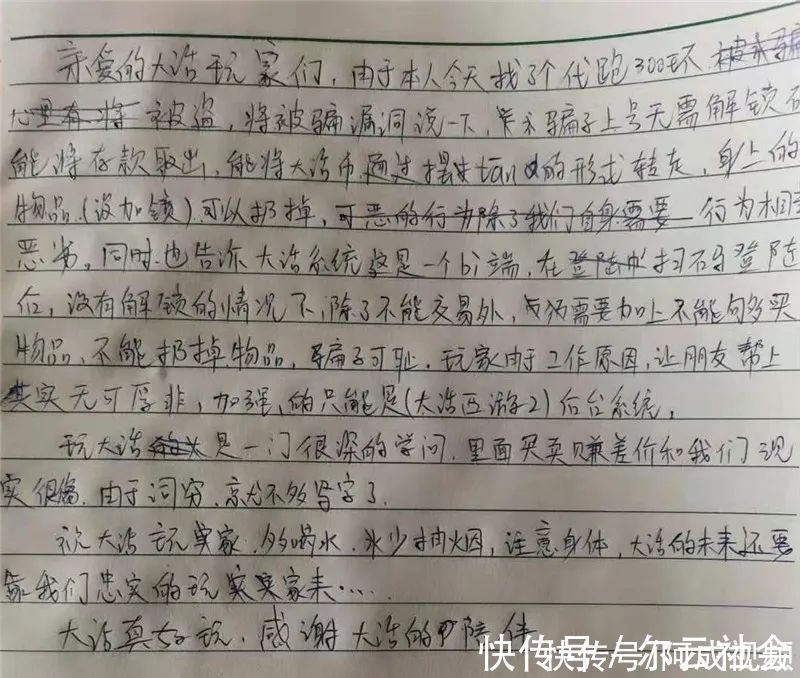 亲爱的大话玩家们,由于本人今天找了个代跑300环
被盗,将被骗漏洞说一下,骗子上号无需解锁
能将存款取出,能将大话币通过摆tan的形式转走,身上的
物品(没加锁)可以扔掉,可恶的行为除了我们自身需要 行为相当
恶劣,同时也告诉大话系统这是一个bi端,在扫码登陆
后,没有解锁的情况下,除了不能交易外,需要加上不能购买
物品,不能扔掉物品,骗子可耻,玩家由于工作原因,让朋友帮上
其实无可厚非,加强的只能是(大话西游2)后台系统,
玩大话是一门很深的学问,里面买卖赚差价和我们现
实很像,由于词穷,就不多写字了
祝大话玩家,多喝水,少抽烟,注意身体,大话的未来还要
靠我们忠实的玩家来……
大话真好玩,感谢大话的陪伴
快传号/尔云社会